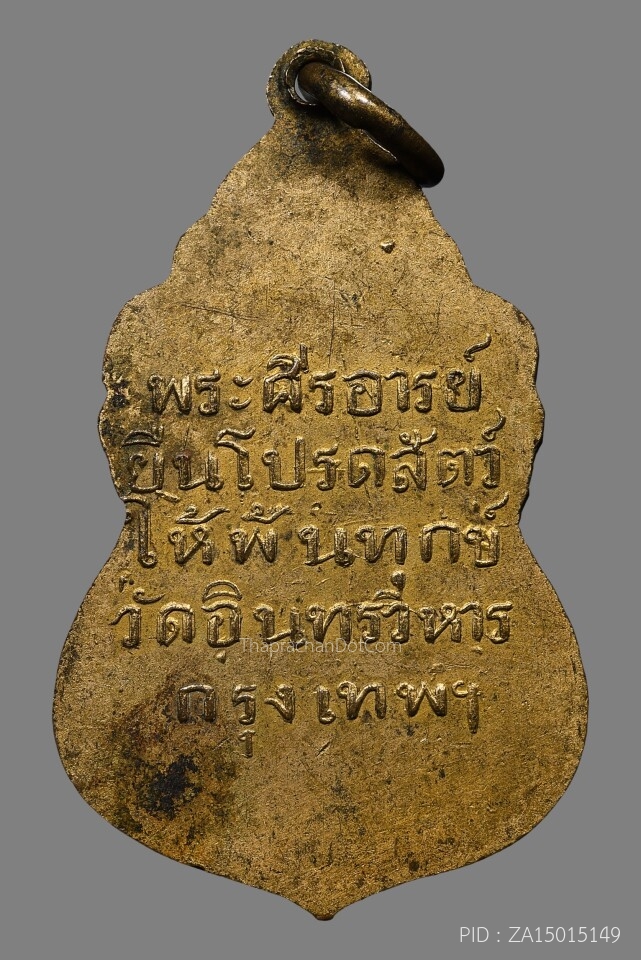 พระศีรอารย์
ยืนโปรดสัตว์
ให้พ้นทุกข์
วัดอินทรวิหาร
ThaprachanDotCom
กรุงเทพฯ
PID : ZA15015149